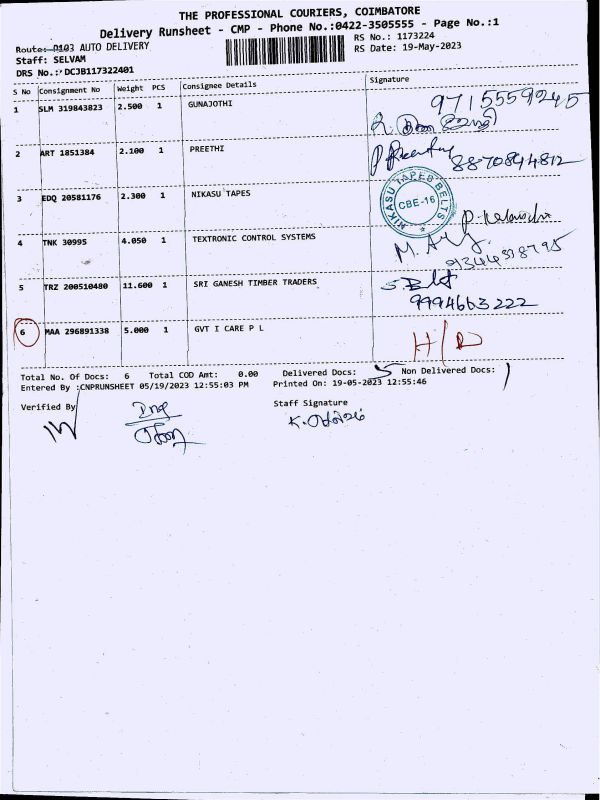 THE PROFESSIONAL COURIERS, COIMBATORE
Delivery Runsheet - CMP - Phone No.:0422-3505555 - Page No.:1
Route: D103 AUTO DELIVERY
RS No.: 1173224
Staff: SELVAM
RS Date: 19-May-2023
DRS No.: DCJB117322401
S No Consignment No Weight PCS Consignee Details Signature
1 SLM 319843823 2.500 1 GUNAJOTHI 9715559245
2 ART 1851384 2.100 1 PREETHI P Preethy 8870894812
3 EDQ 20581176 2.300 1 NIKASU TAPES NIKASU TAPES BELTS CBE-16
4 TNK 30995 4.050 1 TEXTRONIC CONTROL SYSTEMS
5 TRZ 200510480 11.600 1 SRI GANESH TIMBER TRADERS 9994663222
6 MAA 296891338 5.000 1 GVT I CARE P L H/D
Total No. Of Docs: 6 Total COD Amt: 0.00 Delivered Docs: 5 Non Delivered Docs: 1
Entered By :CNPRUNSHEET 05/19/2023 12:55:03 PM Printed On: 19-05-2023 12:55:46
Verified By
Staff Signature